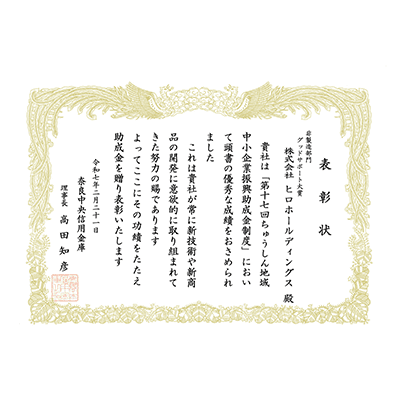 表彰状
非製造部門
グッドサポート大賞
株式会社 ヒロホールディングス 殿
貴社は「第十七回ちゅうしん地域
中小企業振興助成金制度」におい
て頭書の優秀な成績をおさめられ
ました
これは貴社が常に新技術や新商
品の開発に意欲的に取り組まれて
きた努力の賜であります
よってここにその功績をたたえ
助成金を贈り表彰いたします
令和七年二月二十一日
奈良中央信用金庫
理事長 高田知彦